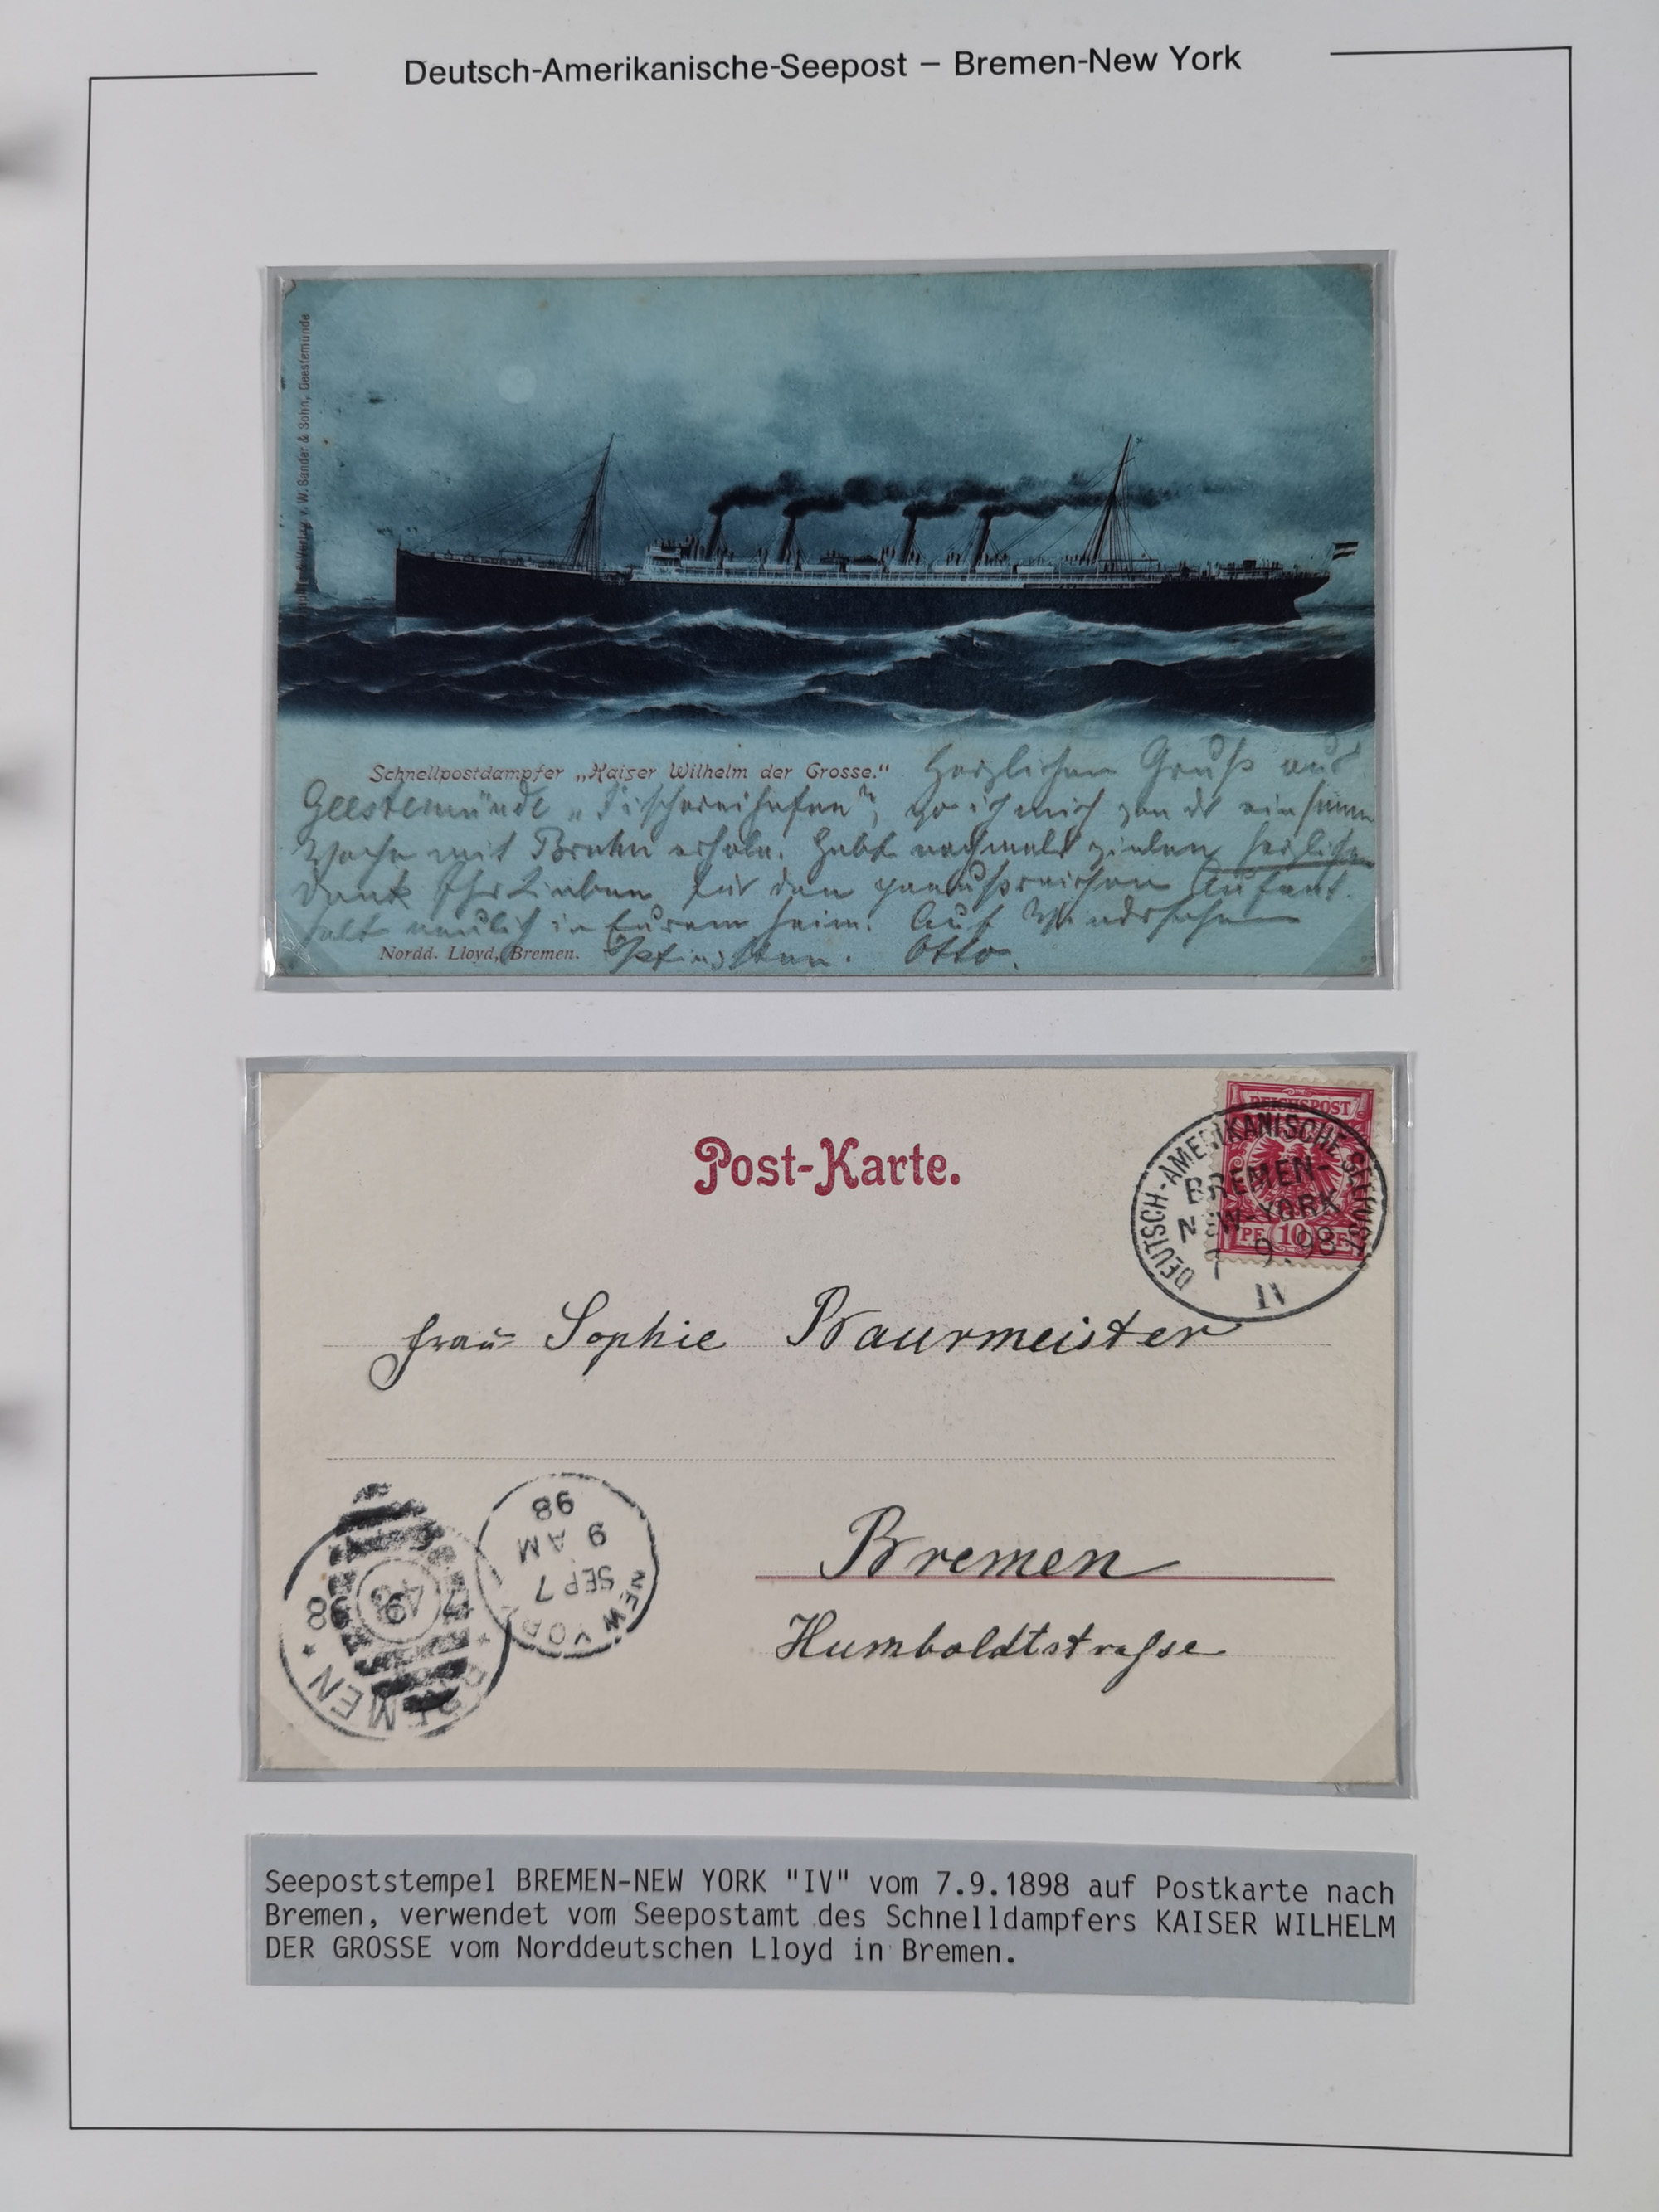 Deutsch-Amerikanische-Seepost – Bremen-New York
Verlag v. W. Sander & Sohn, Geestemünde
Schnellpostdampfer „Kaiser Wilhelm der Grosse.“
Herzlichen Gruß aus
Geestemünde „Fischereihafen“, wo ich mich
Woche mit Bruhn erhole. Habt nochmals vielen herzlichen
Dank Ihr Lieben für den genußreichen Aufent-
halt neulich in Eurem Heim! Auf Wiedersehn
Nordd. Lloyd, Bremen.
Pfingsten. Otto.
Post-Karte.
REICHSPOST
PF 10 PF
DEUTSCH-AMERIKANISCHE SEEPOST
BREMEN-
NEW-YORK
7 9.98
IV
Frau Sophie Baurmeister
Bremen
Humboldtstrasse
NEW YORK
SEP 7
9 AM
98
BREMEN
98
Seepoststempel BREMEN-NEW YORK "IV" vom 7.9.1898 auf Postkarte nach
Bremen, verwendet vom Seepostamt des Schnelldampfers KAISER WILHELM
DER GROSSE vom Norddeutschen Lloyd in Bremen.